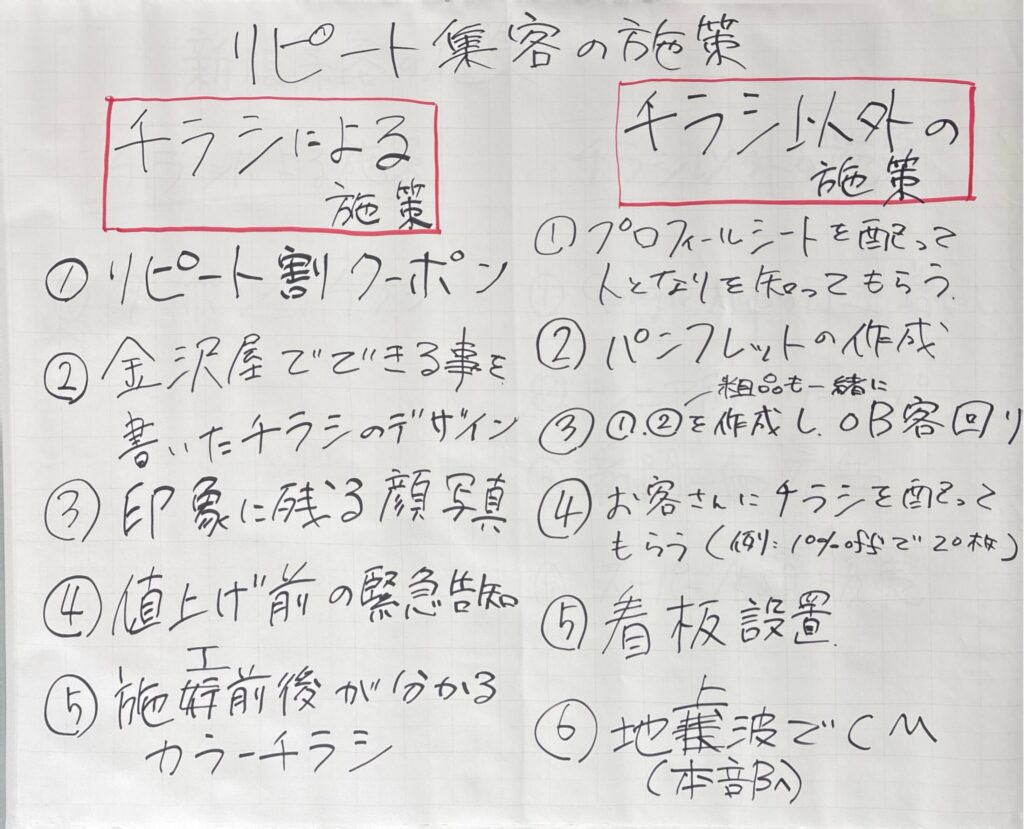 リピート集客の施策
チラシによる
施策
① リピート割クーポン
② 金沢屋でできる事を
書いたチラシのデザイン
③ 印象に残る顔写真
④ 値上げ前の緊急告知
⑤ 施工前後が分かる
カラーチラシ
チラシ以外の
施策
① プロフィールシートを配って
人となりを知ってもらう.
② パンフレットの作成
粗品も一緒に
③ ①.②を作成し.OB客回り
④ お客さんにチラシを配って
もらう(例:10%offで20枚)
⑤ 看板設置.
⑥ 地上波でCM
(本部へ)